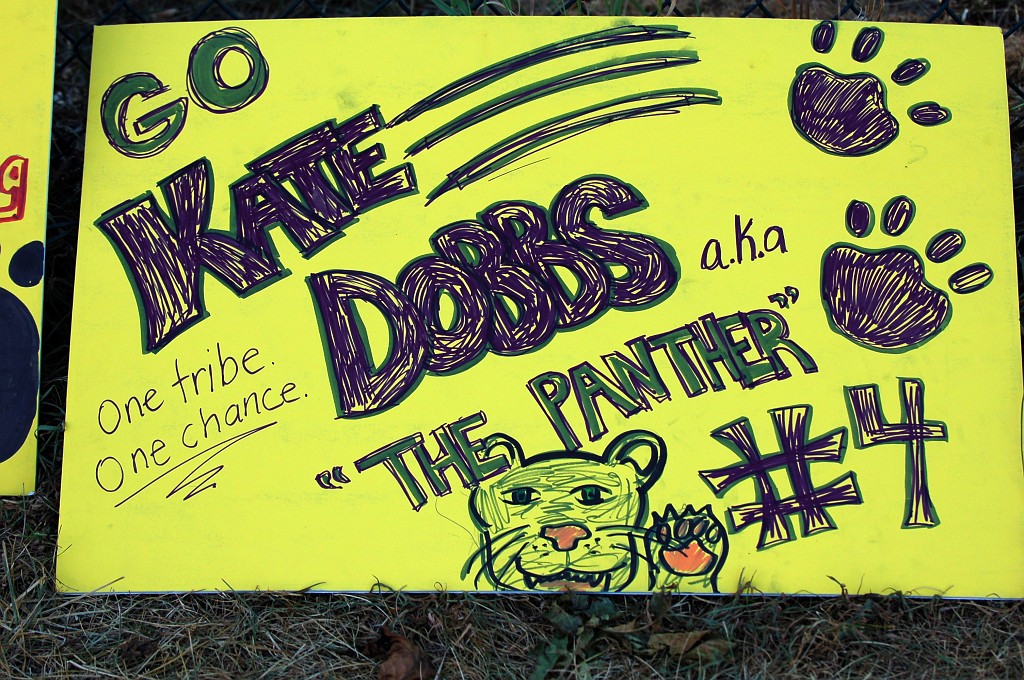 GO
KATE
DOBBS
a.k.a
"THE PANTHER"
#4
One tribe.
One chance.
g